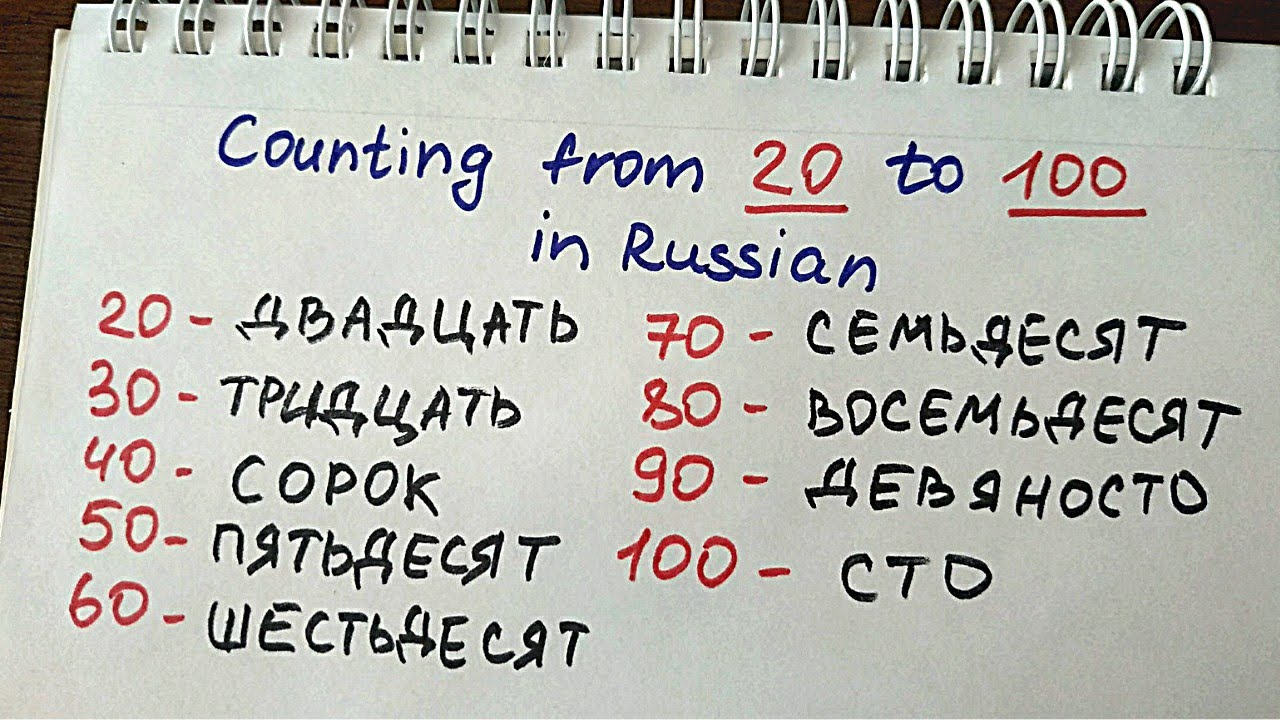 Counting from 20 to 100
in Russian
20 - ДВАДЦАТЬ
30 - ТРИДЦАТЬ
40 - СОРОК
50 - ПЯТЬДЕСЯТ
60 - ШЕСТЬДЕСЯТ
70 - СЕМЬДЕСЯТ
80 - ВОСЕМЬДЕСЯТ
90 - ДЕВЯНОСТО
100 - СТО